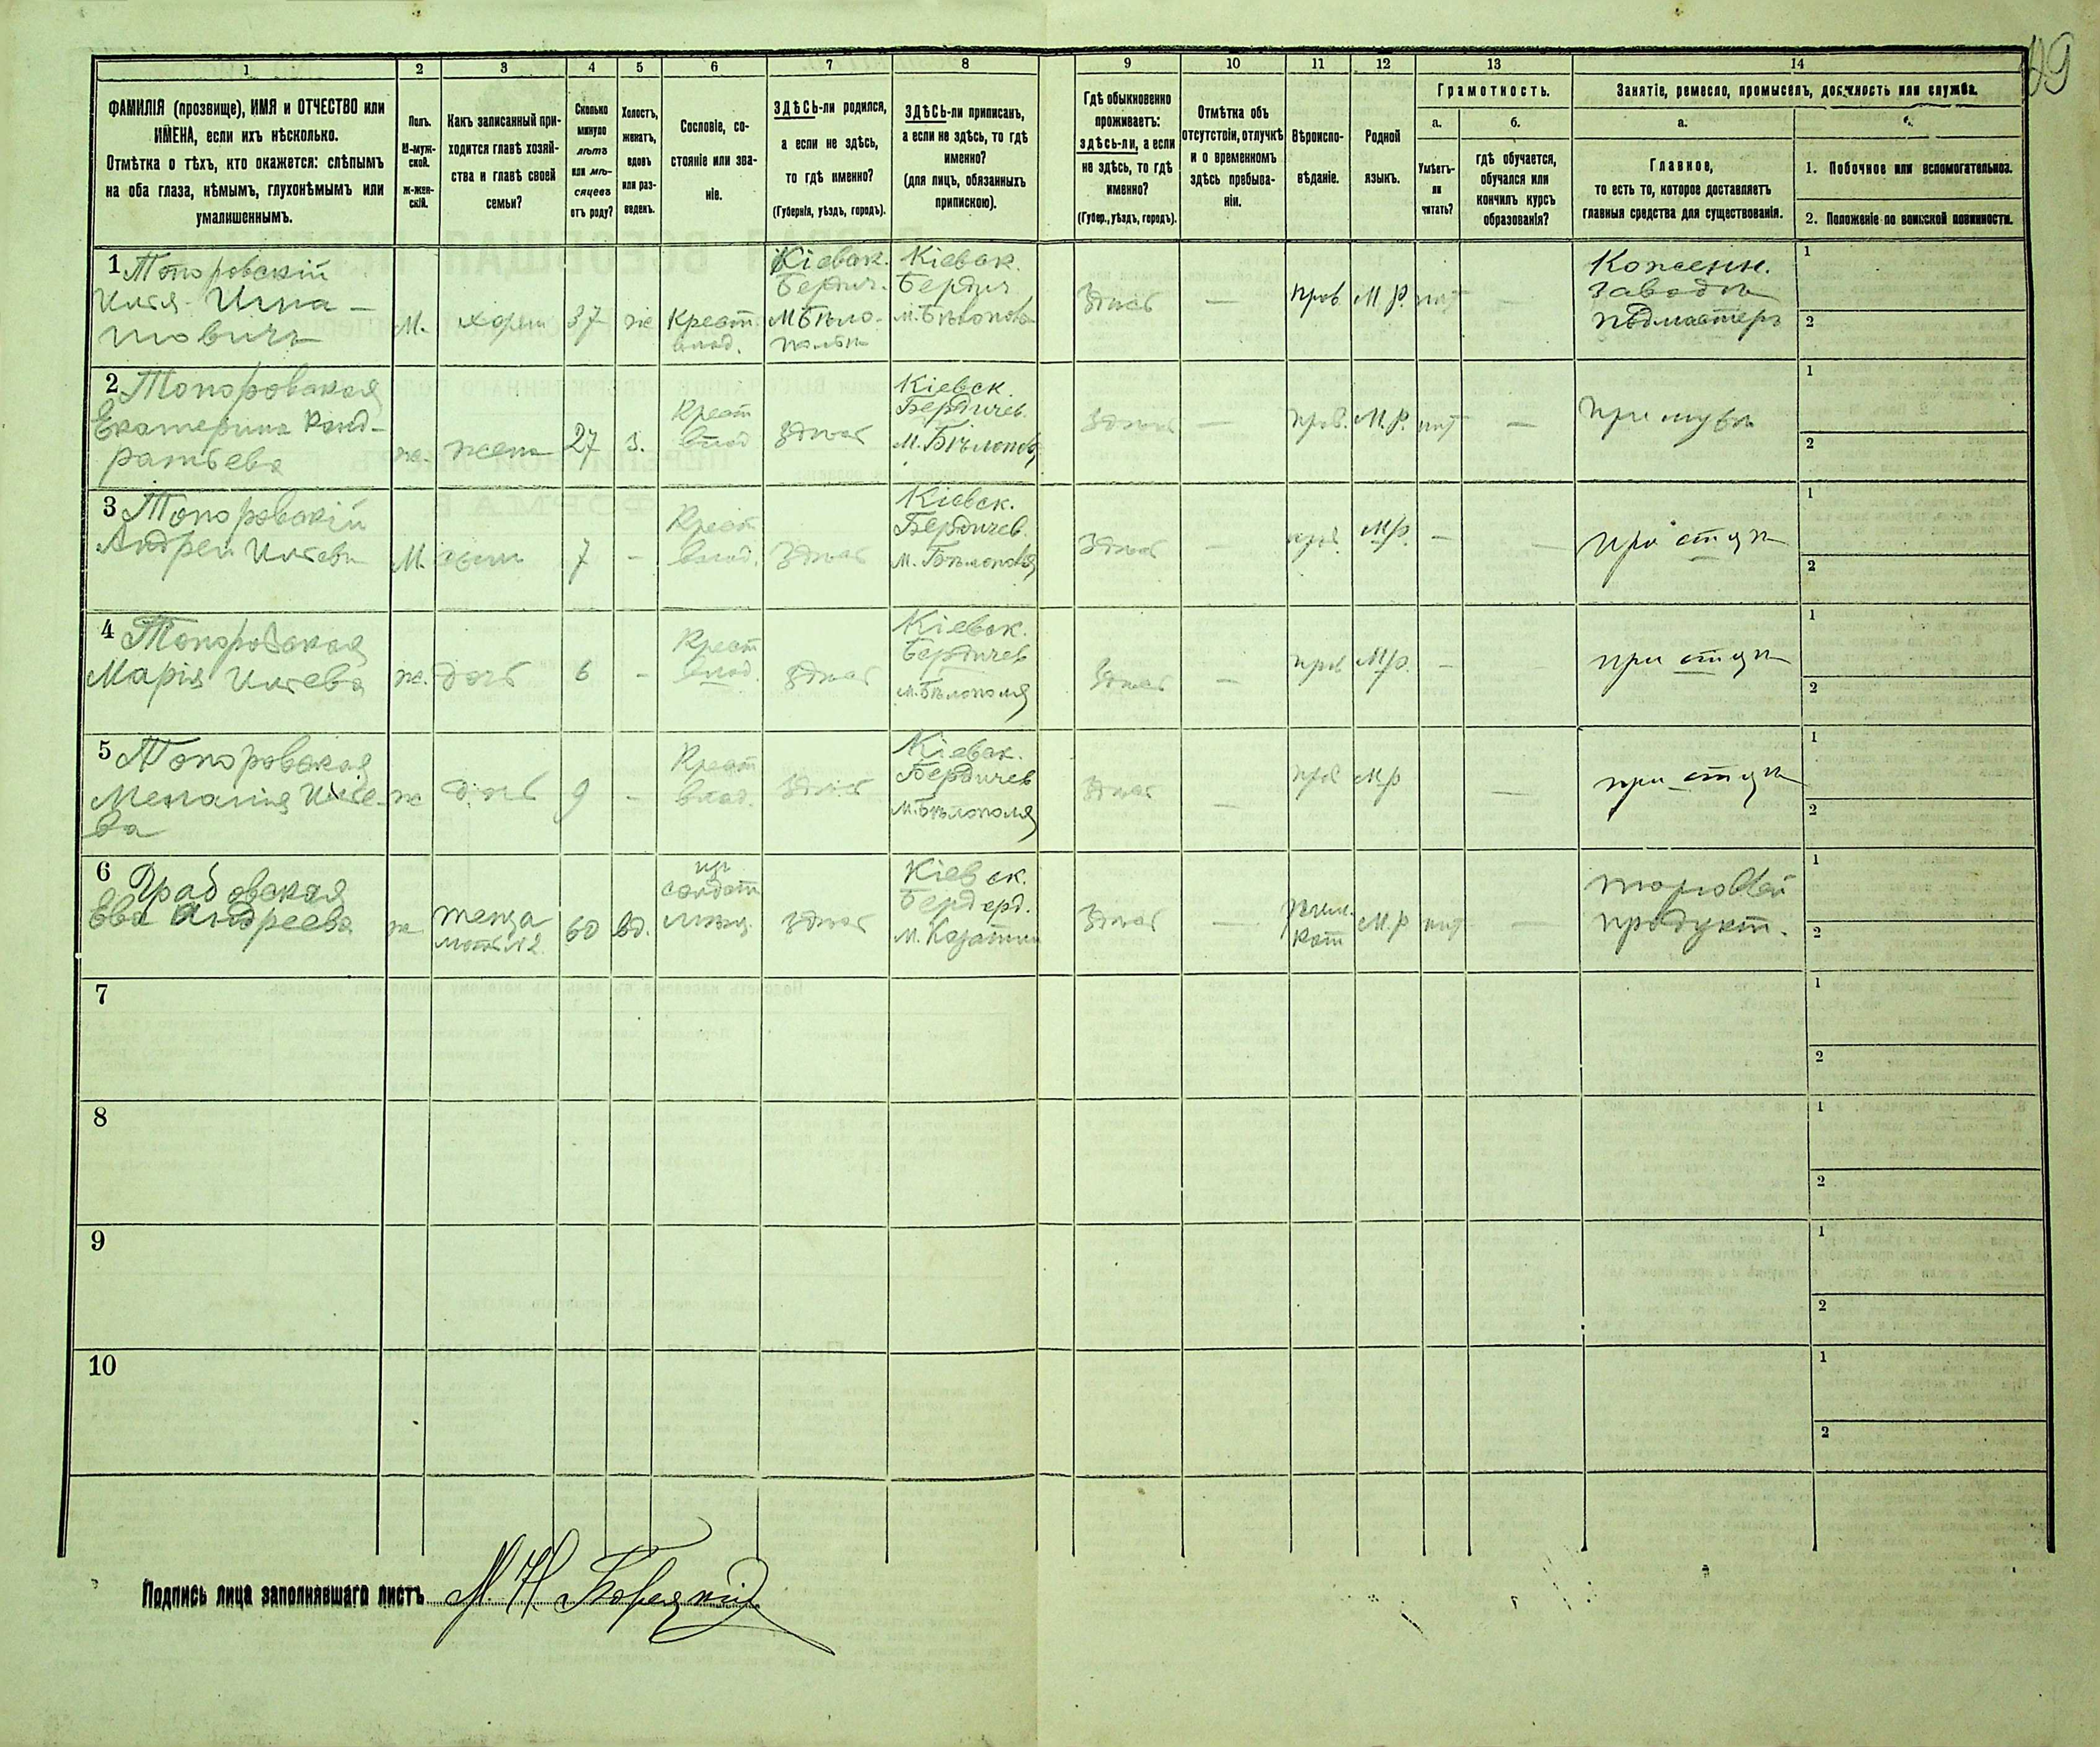 49
1 2 3 4 5 6 7 8 9 10 11 12 13 14
ФАМИЛІЯ (прозвище), ИМЯ и ОТЧЕСТВО или
ИМЕНА, если ихъ нѣсколько.
Отмѣтка о тѣхъ, кто окажется: слѣпымъ
на оба глаза, нѣмымъ, глухонѣмымъ или
умалишеннымъ.
Полъ.
М-муж-
ской.
ж-жен-
скій.
Какъ записанный при-
ходится главѣ хозяй-
ства и главѣ своей
семьи?
Сколько
минуло
лѣтъ
или мѣ-
сяцевъ
отъ роду?
Холостъ,
женатъ,
вдовъ
или раз-
веденъ.
Сословіе, со-
стояніе или зва-
ніе.
ЗДѢСЬ-ли родился,
а если не здѣсь,
то гдѣ именно?
(Губернія, уѣздъ, городъ).
ЗДѢСЬ-ли приписанъ,
а если не здѣсь, то гдѣ
именно?
(для лицъ, обязанныхъ
припискою).
Гдѣ обыкновенно
проживаетъ:
здѣсь-ли, а если
не здѣсь, то гдѣ
именно?
(Губер., уѣздъ, городъ).
Отмѣтка объ
отсутствіи, отлучкѣ
и о временномъ
здѣсь пребыва-
ніи.
Вѣроиспо-
вѣданіе.
Родной
языкъ.
Грамотность.
а.
Умѣетъ-
ли
читать?
б.
гдѣ обучается,
обучался или
кончилъ курсъ
образованія?
Занятіе, ремесло, промыселъ, должность или служба.
а.
Главное,
то есть то, которое доставляетъ
главныя средства для существованія.
1. Побочное или вспомогательное.
2. Положеніе по воинской повинности.
1 Топоровскій
Илія Игна-
товичъ
М.
37
же
Крест
влад.
Кіевск.
Бердич.
М Бѣло-
полье
Кіевск.
Бердич
м. Бѣлополь
Здѣсь
—
прав
М. Р.
нѣт
—
Кожевен.
заводъ
подмастеръ
1
2
2 Топоровская
Екатерина Конд-
ратьева
ж.
жена
27
з.
Крест
влад
здѣсь
Кіевск.
Бердичев.
м. Бѣлополя
Здѣсь
—
прав.
М. Р.
нѣт
—
при мужѣ
1
2
3 Топоровскій
Андрей Иліевъ
М.
сынъ
7
-
Крест
влад.
Здѣсь
Кіевск.
Бердичев.
м. Бѣлополя
Здѣсь
—
прав.
М.р.
—
—
при отцѣ
1
2
4 Топоровская
Марія Иліева
ж.
дочь
6
-
Крест
влад.
здѣсь
Кіевск.
Бердичев
м. Бѣлополя
Здѣсь
—
прав
М.р.
—
—
при отцѣ
1
2
5 Топоровская
Меланія Иліе-
ва
ж
дочь
9
-
Крест
влад.
здѣсь
Кіевск.
Бердичев
м. Бѣлополя
Здѣсь
—
прав
М.р
—
при отцѣ
1
2
6 Грабовская
Ева Андреева
ж
теща
мать №2
60
вд.
здѣсь
Кіевск.
м.
Здѣсь
—
кат.
М. р
нѣт
—
торговлей
продукт.
1
2
7
1
2
8
1
2
9
1
2
10
1
2
Подпись лица заполнявшаго листъ